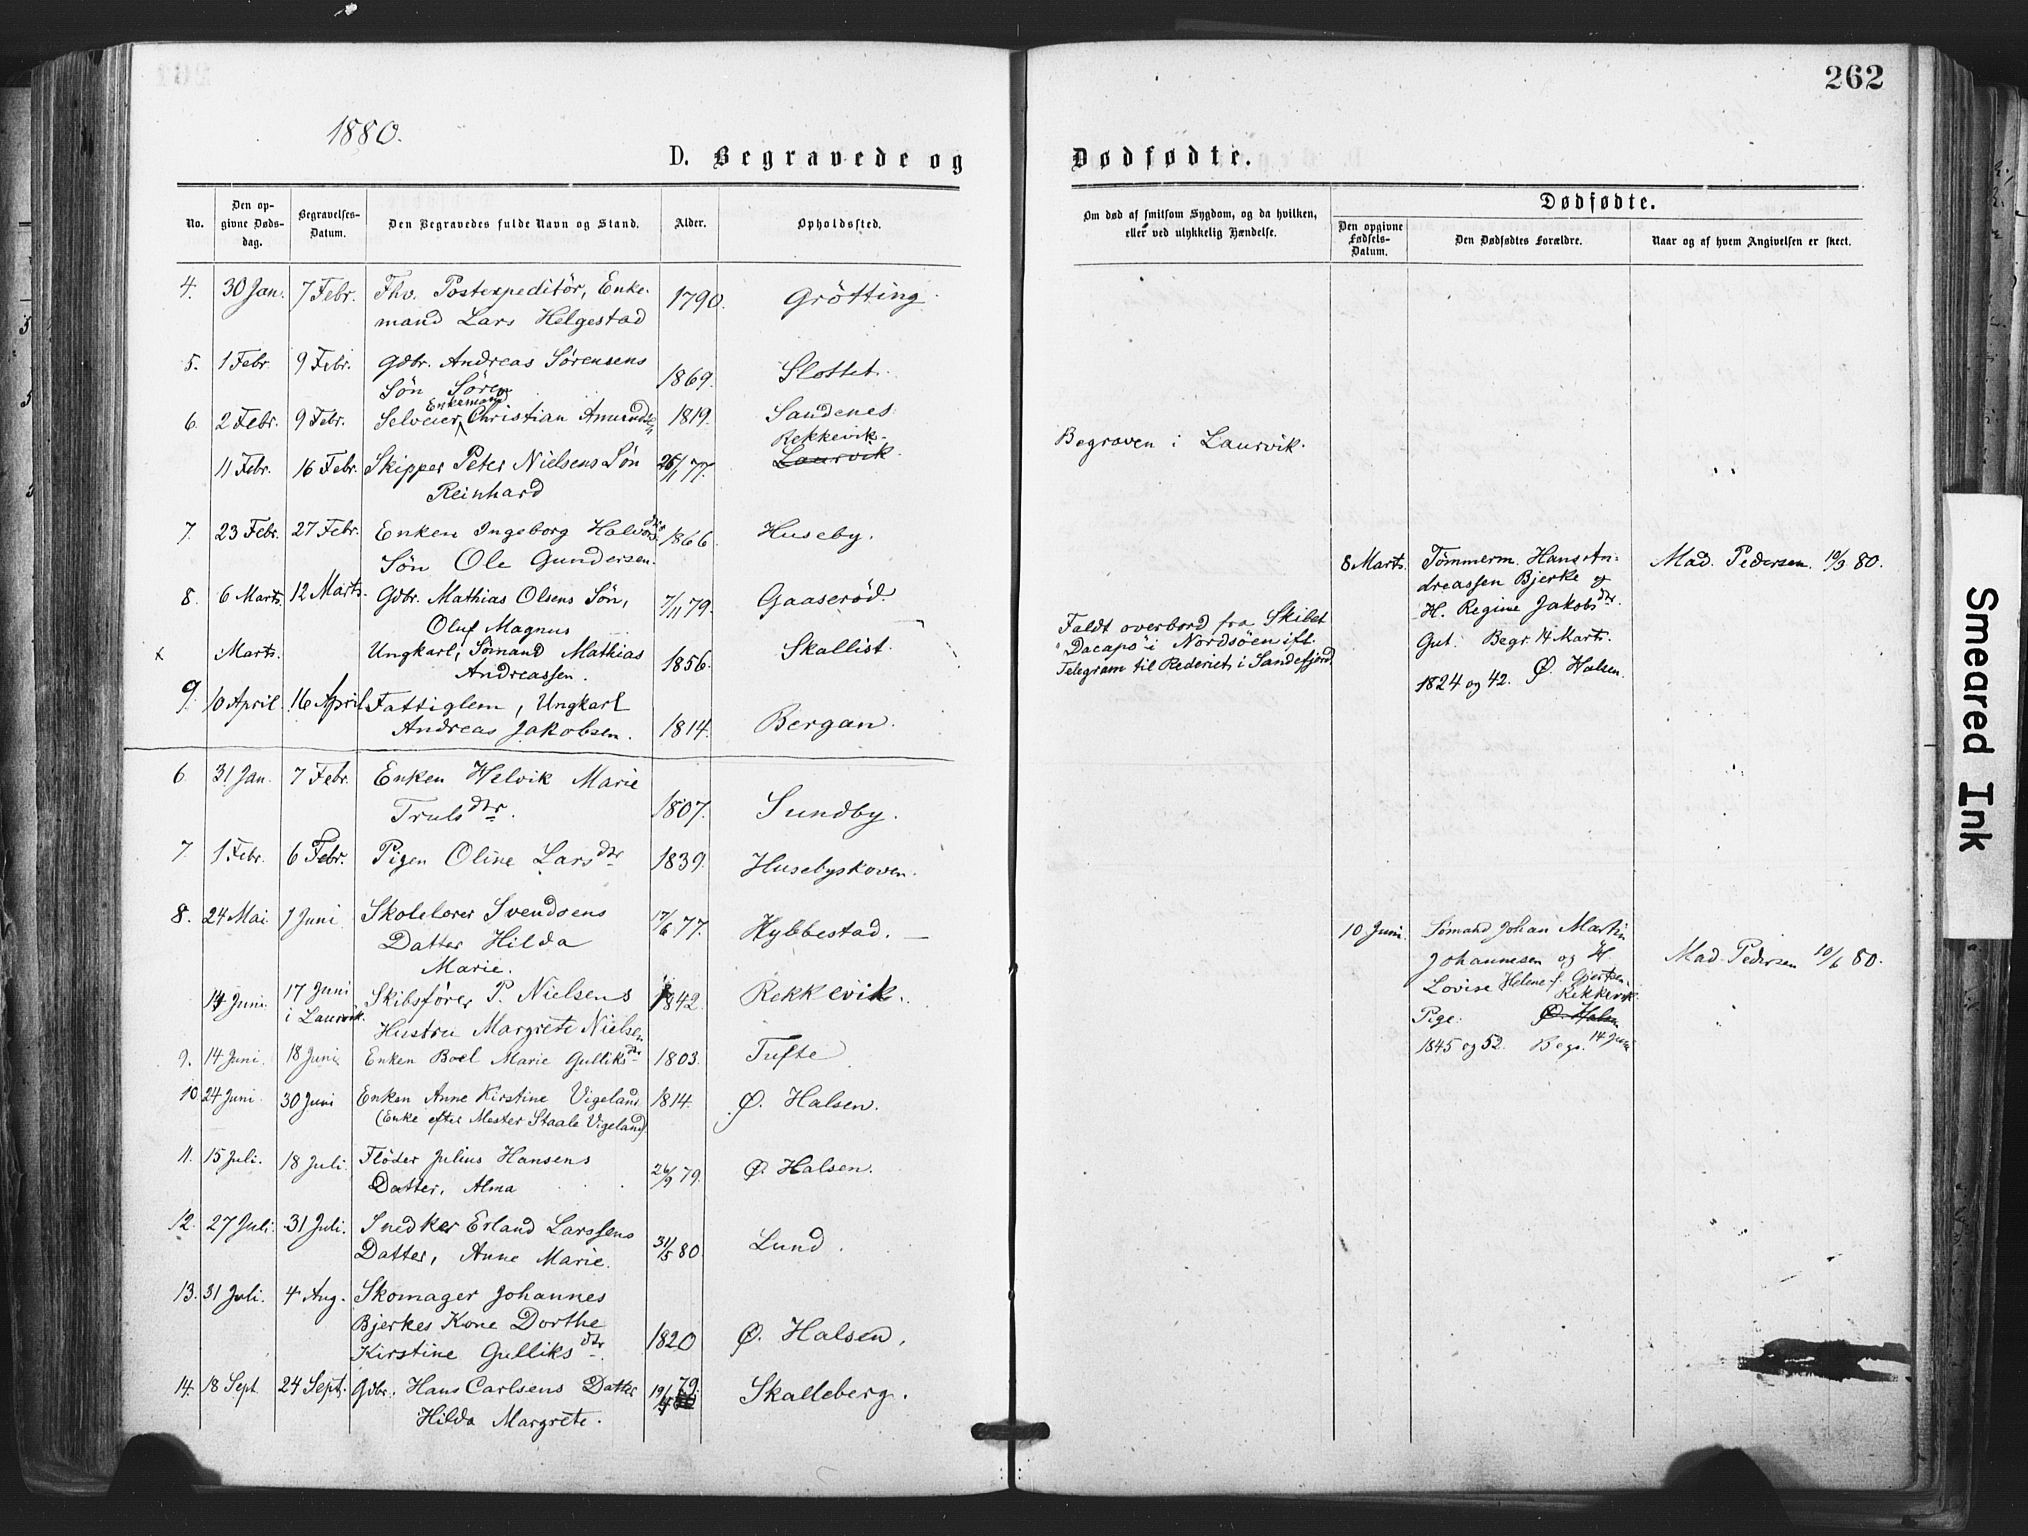 262
1880.
D. Begravede og
Dødfødte.
No.
Den op-
givne Døds-
dag.
Begravelses-
Datum.
Den Begravedes fulde Navn og Stand.
Alder.
Opholdssted.
Om død af smitsom Sygdom, og da hvilken,
eller ved ulykkelig Hændelse.
Dødfødte.
Den opgivne
Fødsels-
Datum.
Den Dødfødtes Forældre.
Naar og af hvem Angivelsen er skeet.
4. 30 Jan. 7 Febr. Fhv. Postexpeditör, Enke-
mand Lars Helgestad 1790. Grötting.
5. 1 Febr. 9 Febr. Gdbr. Andreas Sørensens
Søn Søren 1869. Slottet.
Enkemand
6. 2 Febr. 9 Febr. Selveier Christian Amunds 1819. Sandenes
Rekkevik.
11 Febr. 16 Febr. Skipper Peter Nielsens Søn 26/11 77. Laurvik.
Reinhard
Begraven i Laurvik.
7. 23 Febr. 27 Febr. Enken Ingeborg Halvorsdtr
Søn Ole Gundersen. 1866. Huseby.
8. 6 Marts. 12 Marts. Gdbr. Mathias Olsens Søn, 7/11 79. Gaaserød.
Oluf Magnus
x Marts. Ungkarl, Sømand Mathias 1856. Skallist.
Andreassen.
Faldt overbord fra Skibet
"Dacapo" i Nordsøen ift.
Telegram til Rederiet i Sandefjord
9. 10 April. 16 April Fattiglem, Ungkarl
Andreas Jakobsen. 1814. Bergan.
8 Marts. Tømmerm. Hans An-
dreassen Bjerke og
H. Regine Jakobsdtr.
Gut. Begr. 14 Marts.
1824 og 42. Ø. Halsen.
Mad. Pedersen. 10/3 80.
6. 31 Jan. 7 Febr. Enken Helvik Marie
Trulsdtr. 1807. Sundby.
7. 1 Febr. 6 Febr. Pigen Oline Larsdtr 1839. Husebyskoven.
8. 24 Mai 1 Juni Skolelærer Svendsens 17/6 77. Hybbestad.
Datter Hilda
Marie.
14 Juni. 17 Juni Skibsfører P. Nielsens 1842. Rekkevik.
i Laurvik. Hustru Margrete Nielsen
9. 14 Juni. 18 Juni Enken Boel Marie Gulliksdtr 1803. Tufte
10. 24 Juni. 30 Juni Enken Anne Kirstine Vigeland. 1814. Ø. Halsen.
(Enke efter Mester Staale Vigeland).
11. 15 Juli. 18 Juli. Fløder Julius Hansens
Datter, Alma 26/9 79. Ø. Halsen.
12. 27 Juli. 31 Juli. Snedker Erland Larssens
Datter, Anne Marie. 31/5 80. Lund.
13. 31 Juli. 4 Aug. Skomager Johannes
Bjerkes Kone Dorthe
Kirstine Gulliksdtr. 1820 Ø. Halsen.
14. 18 Sept. 24 Sept. Gdbr. Hans Carlsens Datter 19/4 79. Skalleberg.
Hilda Margrete.
10 Juni. Sømand Johan Martin
Johannesen og H
Lovise Helene f. Gjertsen.
Rekkevik
Pige. Ø. Halsen
1845 og 52. Begr. 14 Juni
Mad. Pedersen 10/6 80.
Smeared Ink